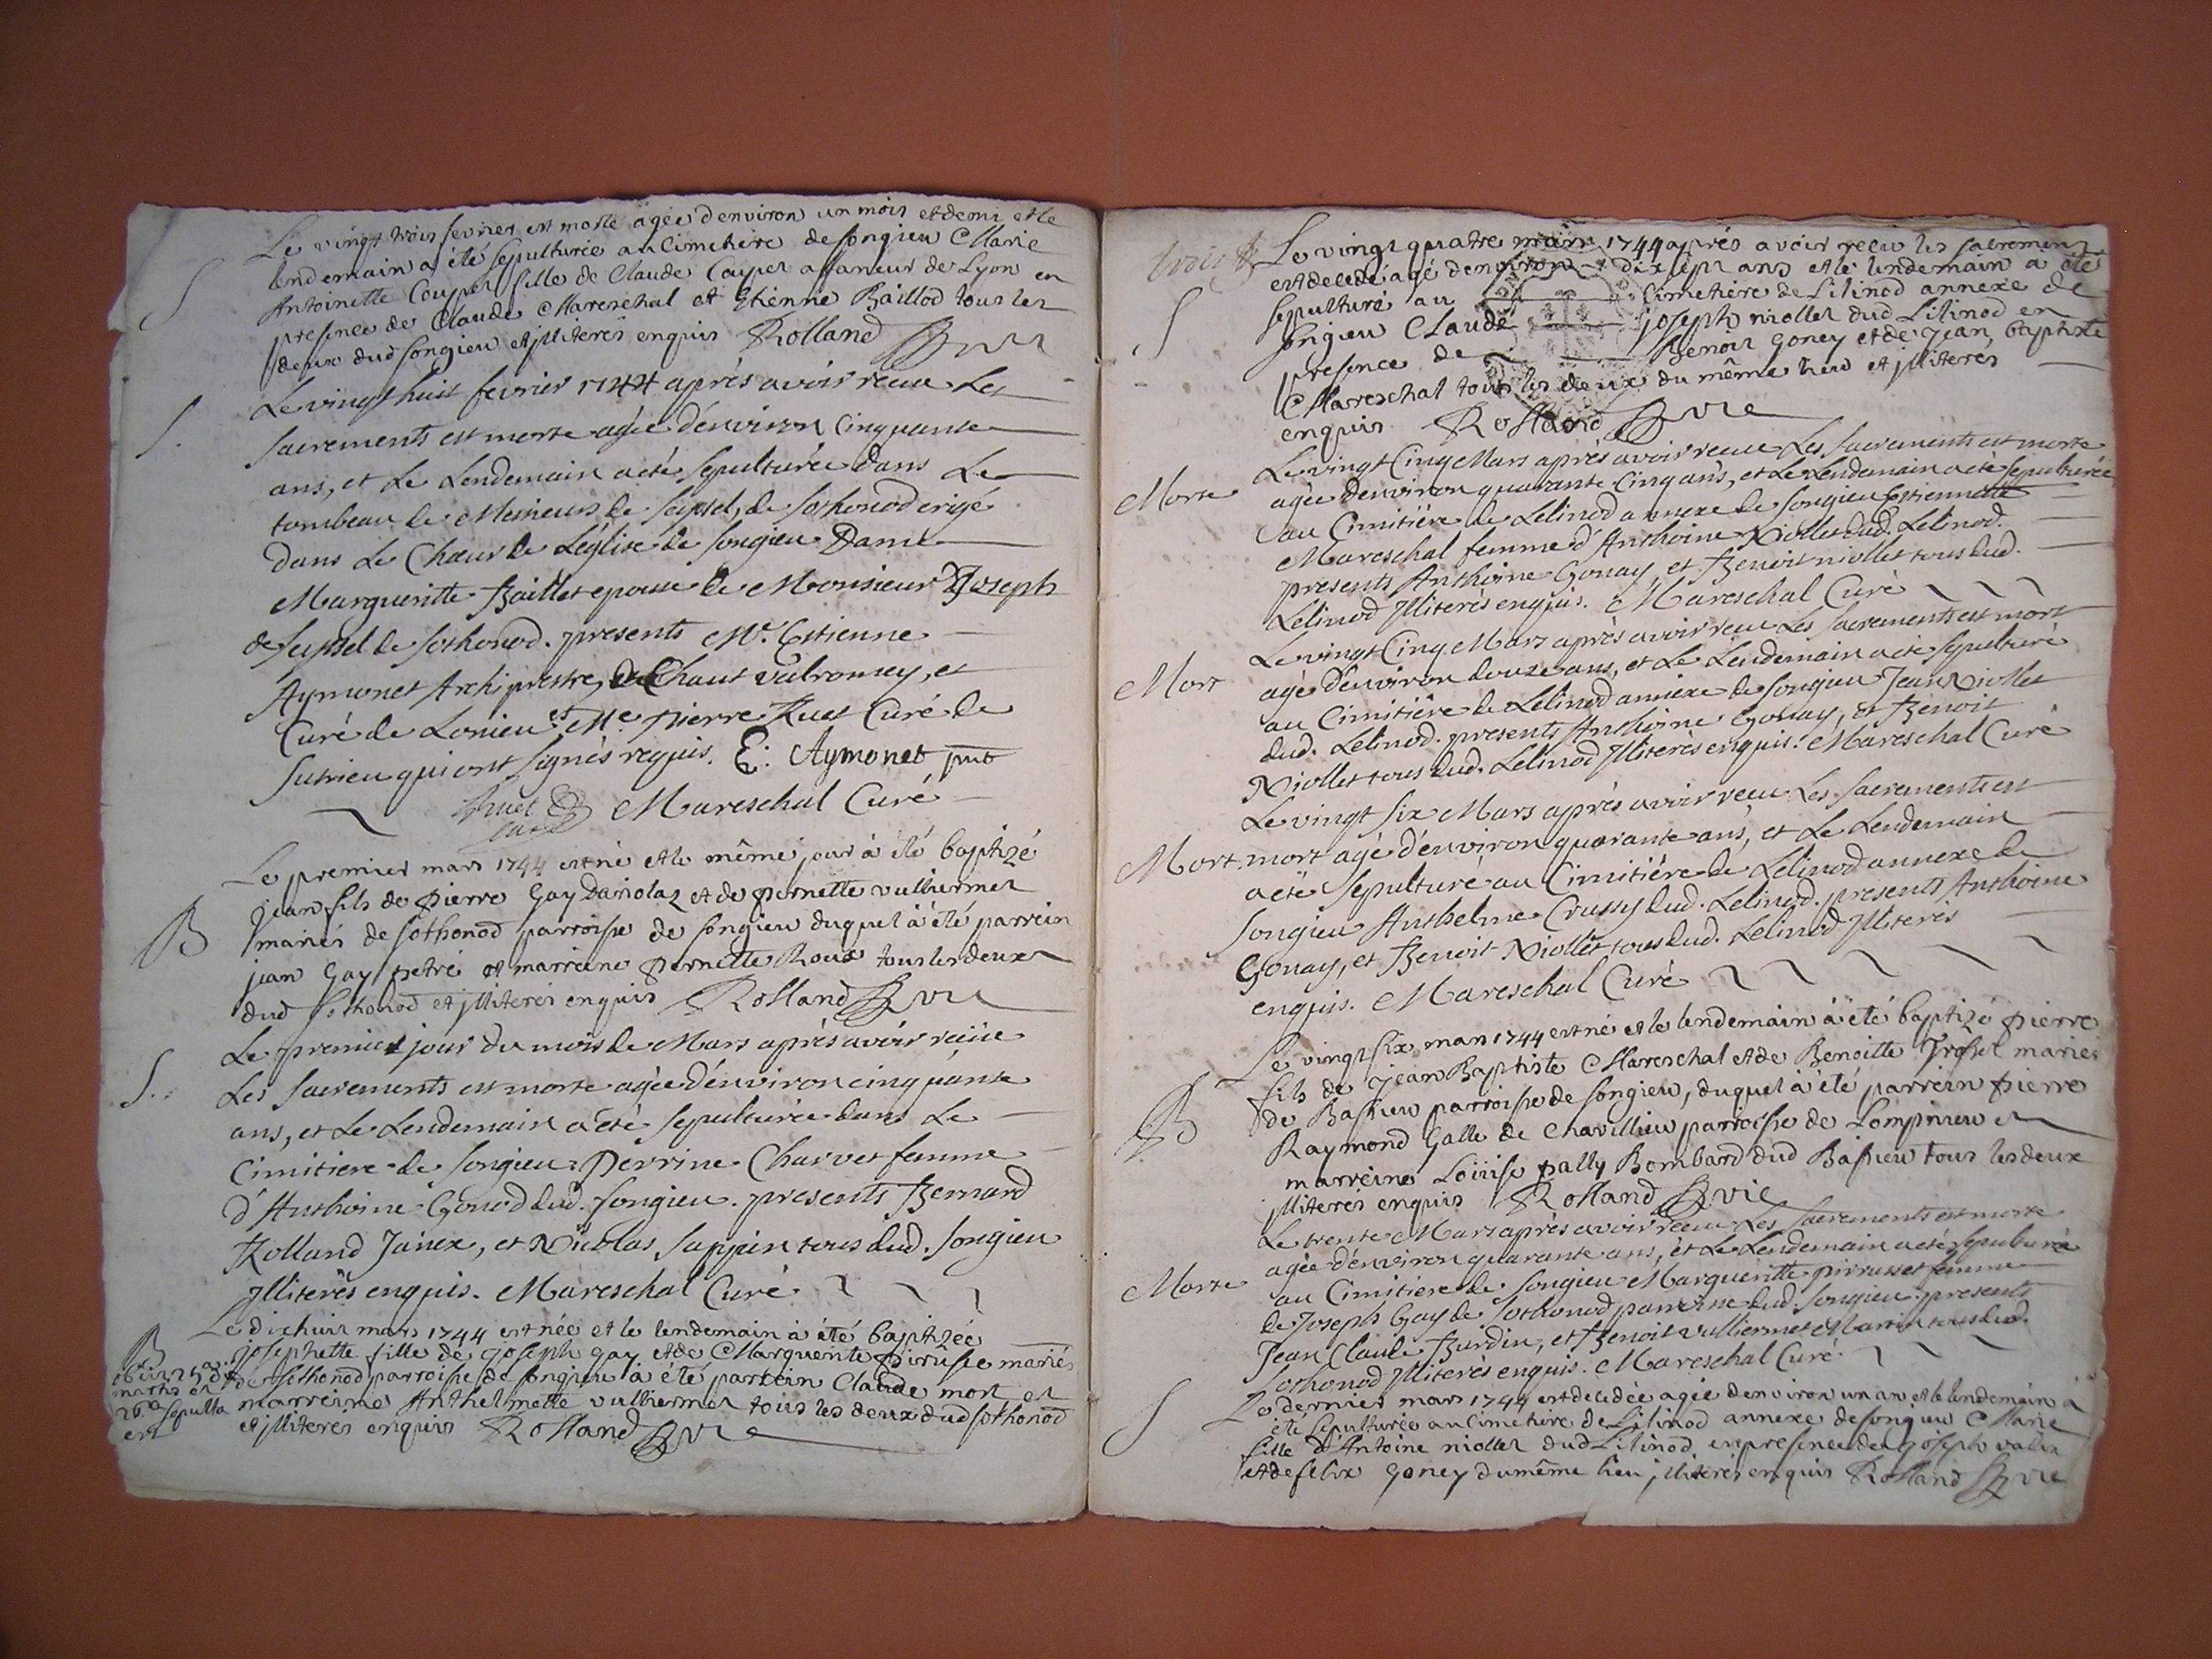 Le vingt trois fevrier est morte agée d'environ un mois et demi et le
lendemain a été sepulturée au Cimetiere de songieu Marie
S
Antoinette Couper fille de Claude Couper affaneur de Lyon en
presence de Claude Mareschal et Etienne Baillod tous les
deux dud songieu et jlliterés enquis Rolland vic
Le vingt huit fevrier 1744 après avoir recue Les
S.
sacrements est morte agée d'environ Cinquante
ans, et Le Lendemain a été sepulturée dans Le
tombeau de Messieurs de Seyssel, de sothonod erigé
dans Le Chœur de L'église de songieu Dame
Margueritte Baillet epouse de Monsieur Joseph
de seyssel de sothonod. presents Mr. Estienne
Aymonet Archiprestre, de Chaut valromey, et
Curé de Lonieu et Me pierre Ruet Curé de
sutrieu qui ont signés requis. E. Aymonet pnt
Ruet curé Mareschal Curé
Le premier mars 1744 est né et le même jour à été baptizé
jean fils de pierre Gay Dariolaz et de pernette vulliermet
B
mariés de sothonod parroisse de songieu duquel à été parrein
jean Gay petré et marreine pernette Roux tous les deux
dud sothonod et jlliterés enquis Rolland vic
Le premier jour du mois de Mars après avoir reçüe
S.
Les sacrements est morte agée d'environ cinquante
ans, et Le Lendemain a été sepulturée dans Le
Cimitiere de songieu Perrine Charvet femme
d'Anthoine Gonod dud. songieu. presents Bernard
Rolland Janex, et Nicolas sappin tous dud. songieu
Jlliterés enquis. Mareschal Curé
Le dixhuit mars 1744 est née et le lendemain à été baptizée
B
josephette fille de joseph gay et de Marguerite pirusse mariés
obiit 25a
de sothonod parroisse de songieu à été parrein Claude mort et
martii et
marreine Anthelmette vulliermet tous les deux dud sothonod
26a sepulta
est
et jlliterés enquis Rolland vic
Le vingt quatre mars 1744 après avoir recu les sacremens
est decedé agé d'environ dix sept ans et le lendemain a été
S
sepulturé au Cimetiere de Lilinod annexe de
songieu Claude joseph niollet dud Lilinod en
presence de Benoit Goney et de jean baptiste
Mareschal tous les deux du même lieu et jlliterés
enquis Rolland vic
Le vingt Cinq Mars apres avoir recue Les sacrements est morte
Morte
agée d'environ quarante Cinq ans, et Le Lendemain a été sepulturée
au Cimitiére de Lelinod annexe de songieu Estiennette
Mareschal femme d'Anthoine Niollet dud. Lelinod.
presents Anthoine Gonay, et Benoit niollet tous dud.
Lelinod Jlliterés enquis. Mareschal Curé
Le vingt Cinq Mars après avoir recu Les sacrements est mort
Mort
agé d'environ douze ans, et Le Lendemain a été sepulturé
au Cimitiére de Lelinod annexe de songieu Jean Niollet
dud. Lelinod. presents Anthoine Gonay, et Benoit
Niollet tous dud. Lelinod Jlliterés enquis. Mareschal Curé
Le vingt six Mars après avoir recu Les sacrements est
Mort. mort agé d'environ quarante ans, et Le Lendemain
a été sepulturé au Cimitiére de Lelinod annexe de
songieu Anthelme Crussy dud. Lelinod. presents Anthoine
Gonay, et Benoit Niollet tous dud. Lelinod Jlliterés
enquis. Mareschal Curé
Le vingt six mars 1744 est né et le lendemain à été baptizé pierre
fils de jean Baptiste Mareschal et de Benoitte mariés
B
de Bassieu parroisse de songieu, duquel à été parrein pierre
Raymond Galle de Chavillieu parroisse de Lompnieu et
marreine Loüise pally Bombard dud Bassieu tous les deux
jlliterés enquis Rolland vic
Le trente Mars après avoir recue Les sacrements est morte
agée d'environ quarante ans, et Le Lendemain a été sepulturée
Morte
au Cimitiere de songieu Margueritte pirrusset femme
de Joseph Gay de sothonod parroisse dud. songieu. presents
Jean Claude Burdin, et Benoit vulliermet Martin tous dud.
sothonod Jlliterés enquis. Mareschal Curé
S
Le dernier mars 1744 est decedée agée d'environ un an et le lendemain à
été sepulturée au Cimetiere de Lilinod annexe de songieu Marie
fille d'Antoine niollet dud Lilinod en presence de joseph valin
et de felix Goney du même lieu jlliterés enquis Rolland vic